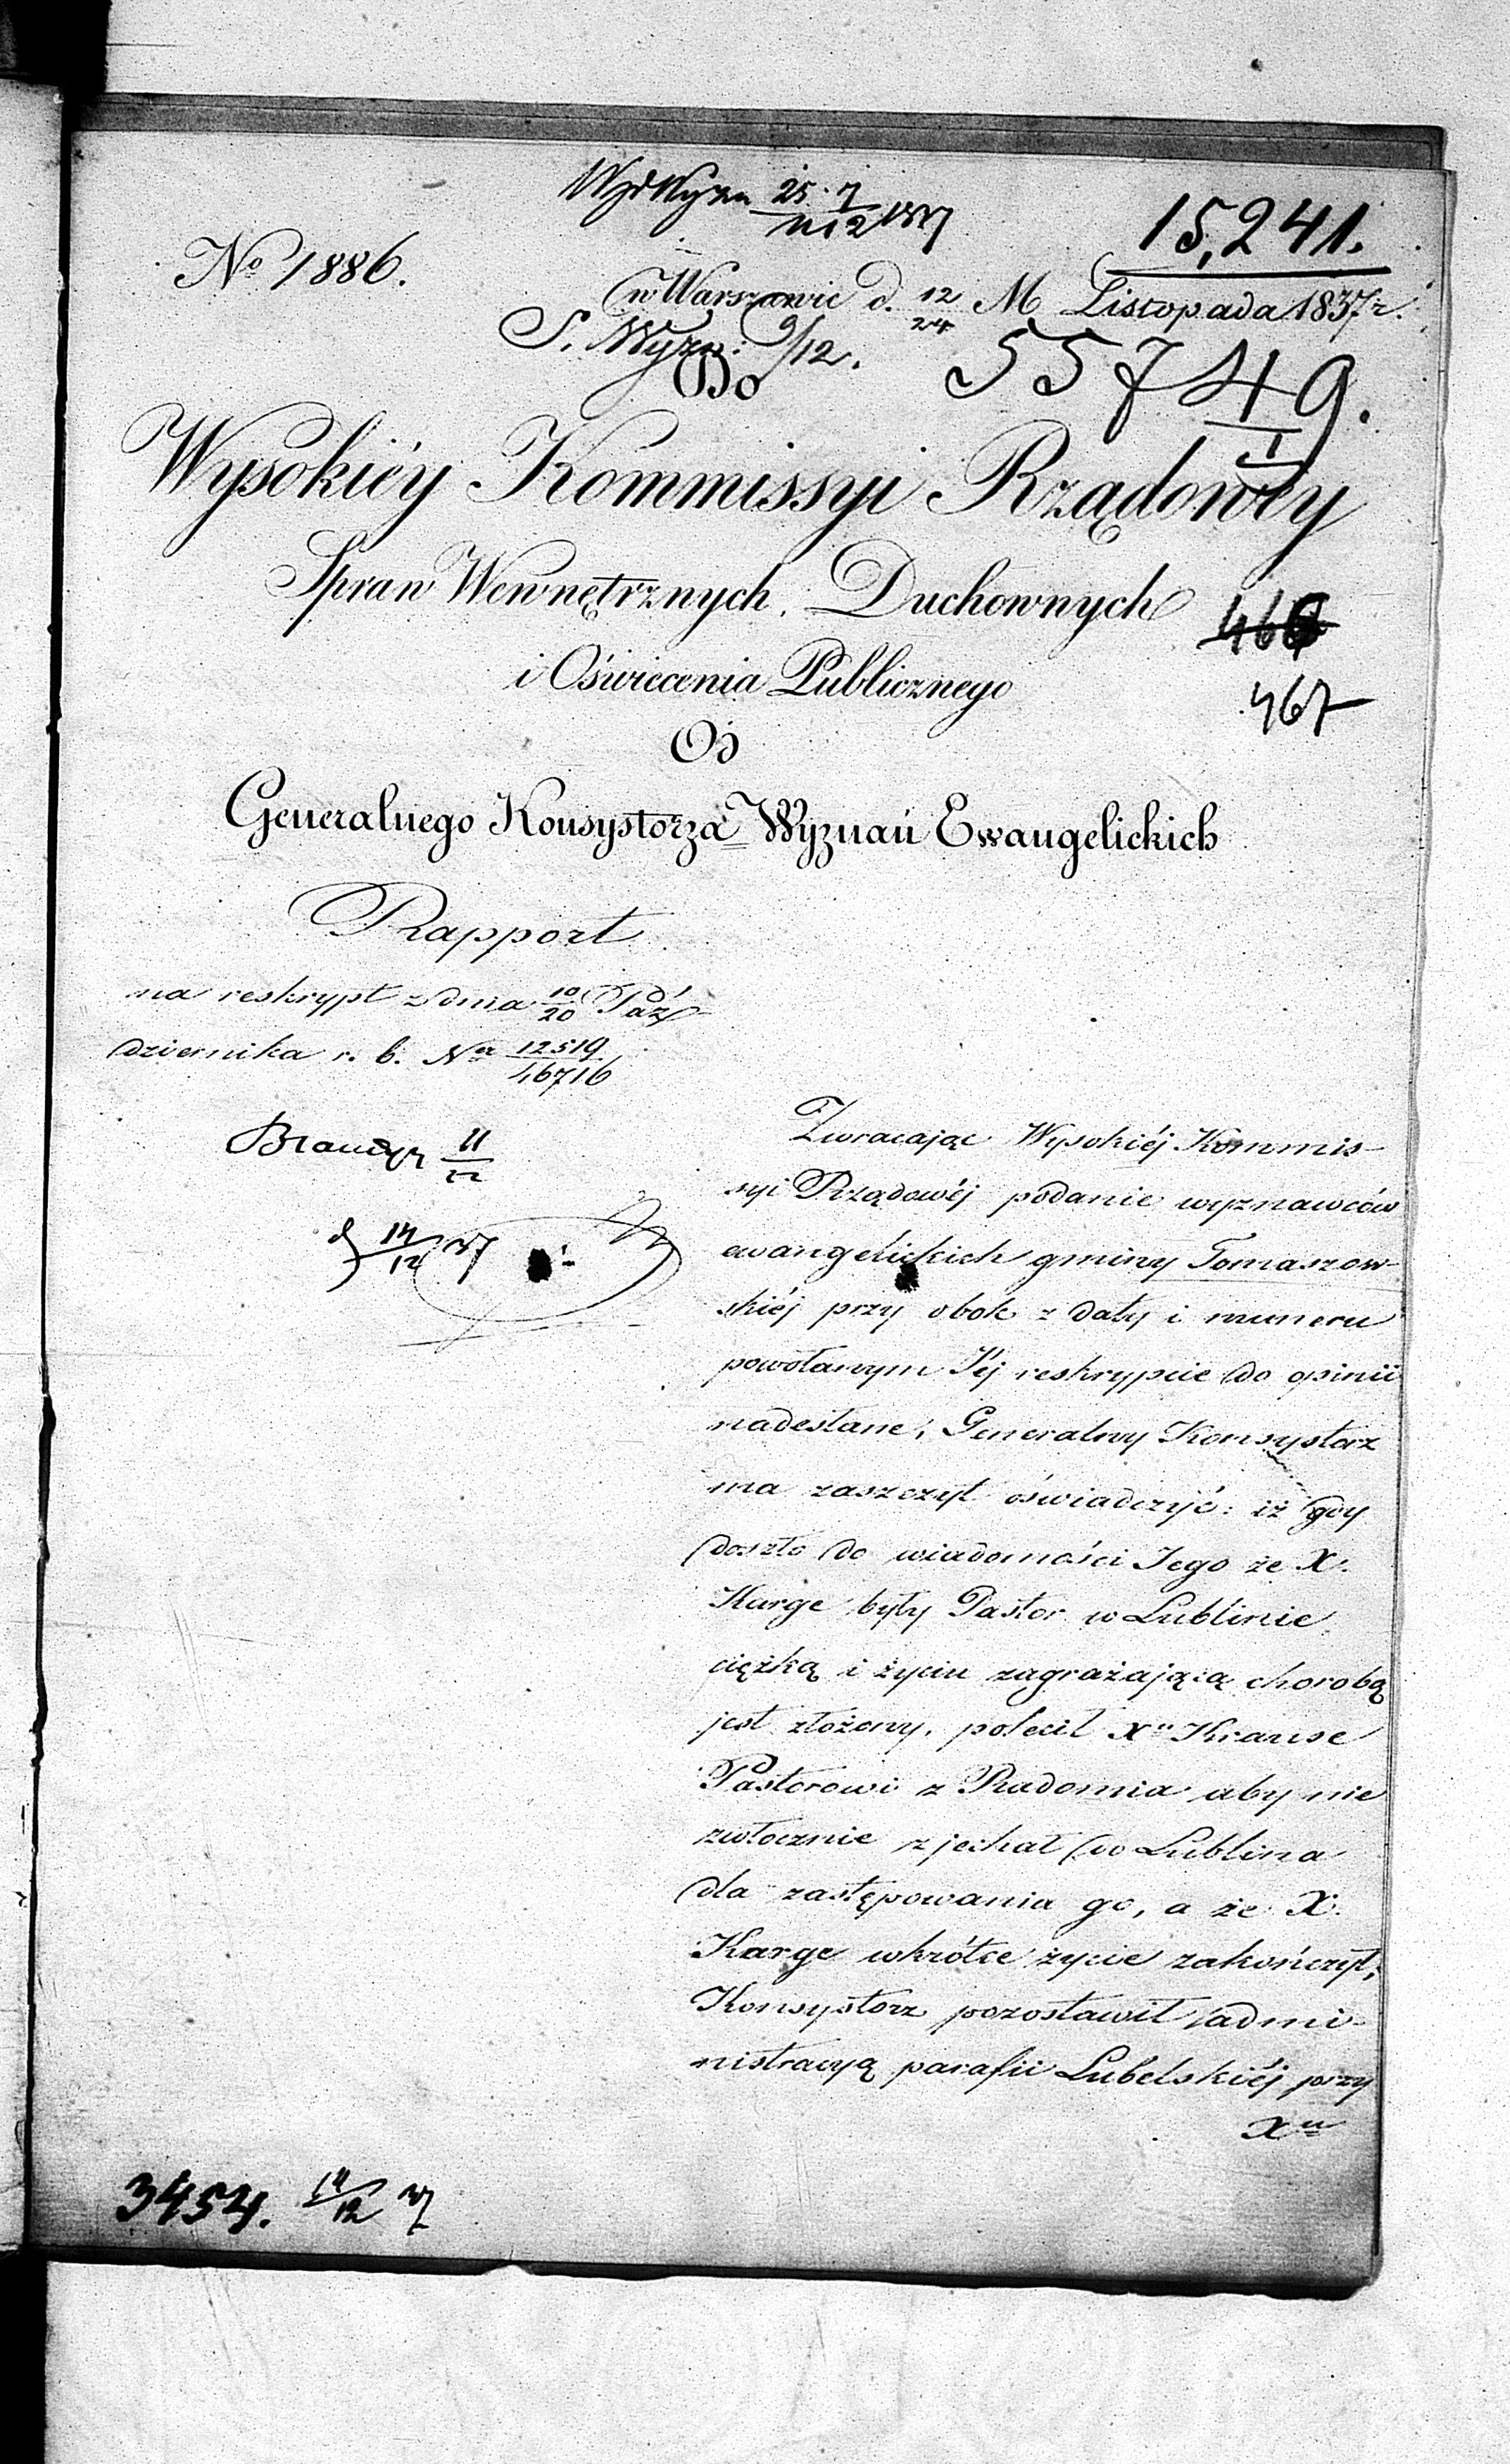 15,241.
No 1886.
w Warszawie d. 12/24 M Listopada 1837 r.
S. Wyzn: 9/12.
55749.
Do
Wysokiéy Kommissyi Rządowéy
Spraw Wewnętrznych, Duchownych
466
i Oświecenia Publicznego
467
Od
Generalnego Konsystorza Wyznań Ewangelickich
Rapport
na reskrypt z dnia 10/20 Paź-
dziernika r. b. Nr 12519/46716
Zwracając Wysokiéj Kommis-
syi Rządowéj podanie wyznawców
ewangelickich gminy Tomaszow-
skiéj przy obok z daty i numeru
powołanym Jéj reskrypcie do opinii
nadesłane, Generalny Konsystorz
ma zaszczyt oświadczyć: iż gdy
doszło do wiadomości Jego że X.
Karge były Pastor w Lublinie
ciężką i życiu zagrażającą chorobą
jest złożony, polecił Xu Krause
Pastorowi z Radomia aby nie
zwłocznie zjechał do Lublina
dla zastępowania go, a że X.
Karge wkrótce życie zakończył,
Konsystorz pozostawił admi-
nistracyą parafii Lubelskiéj przy
Xu
3454. 14/12 37